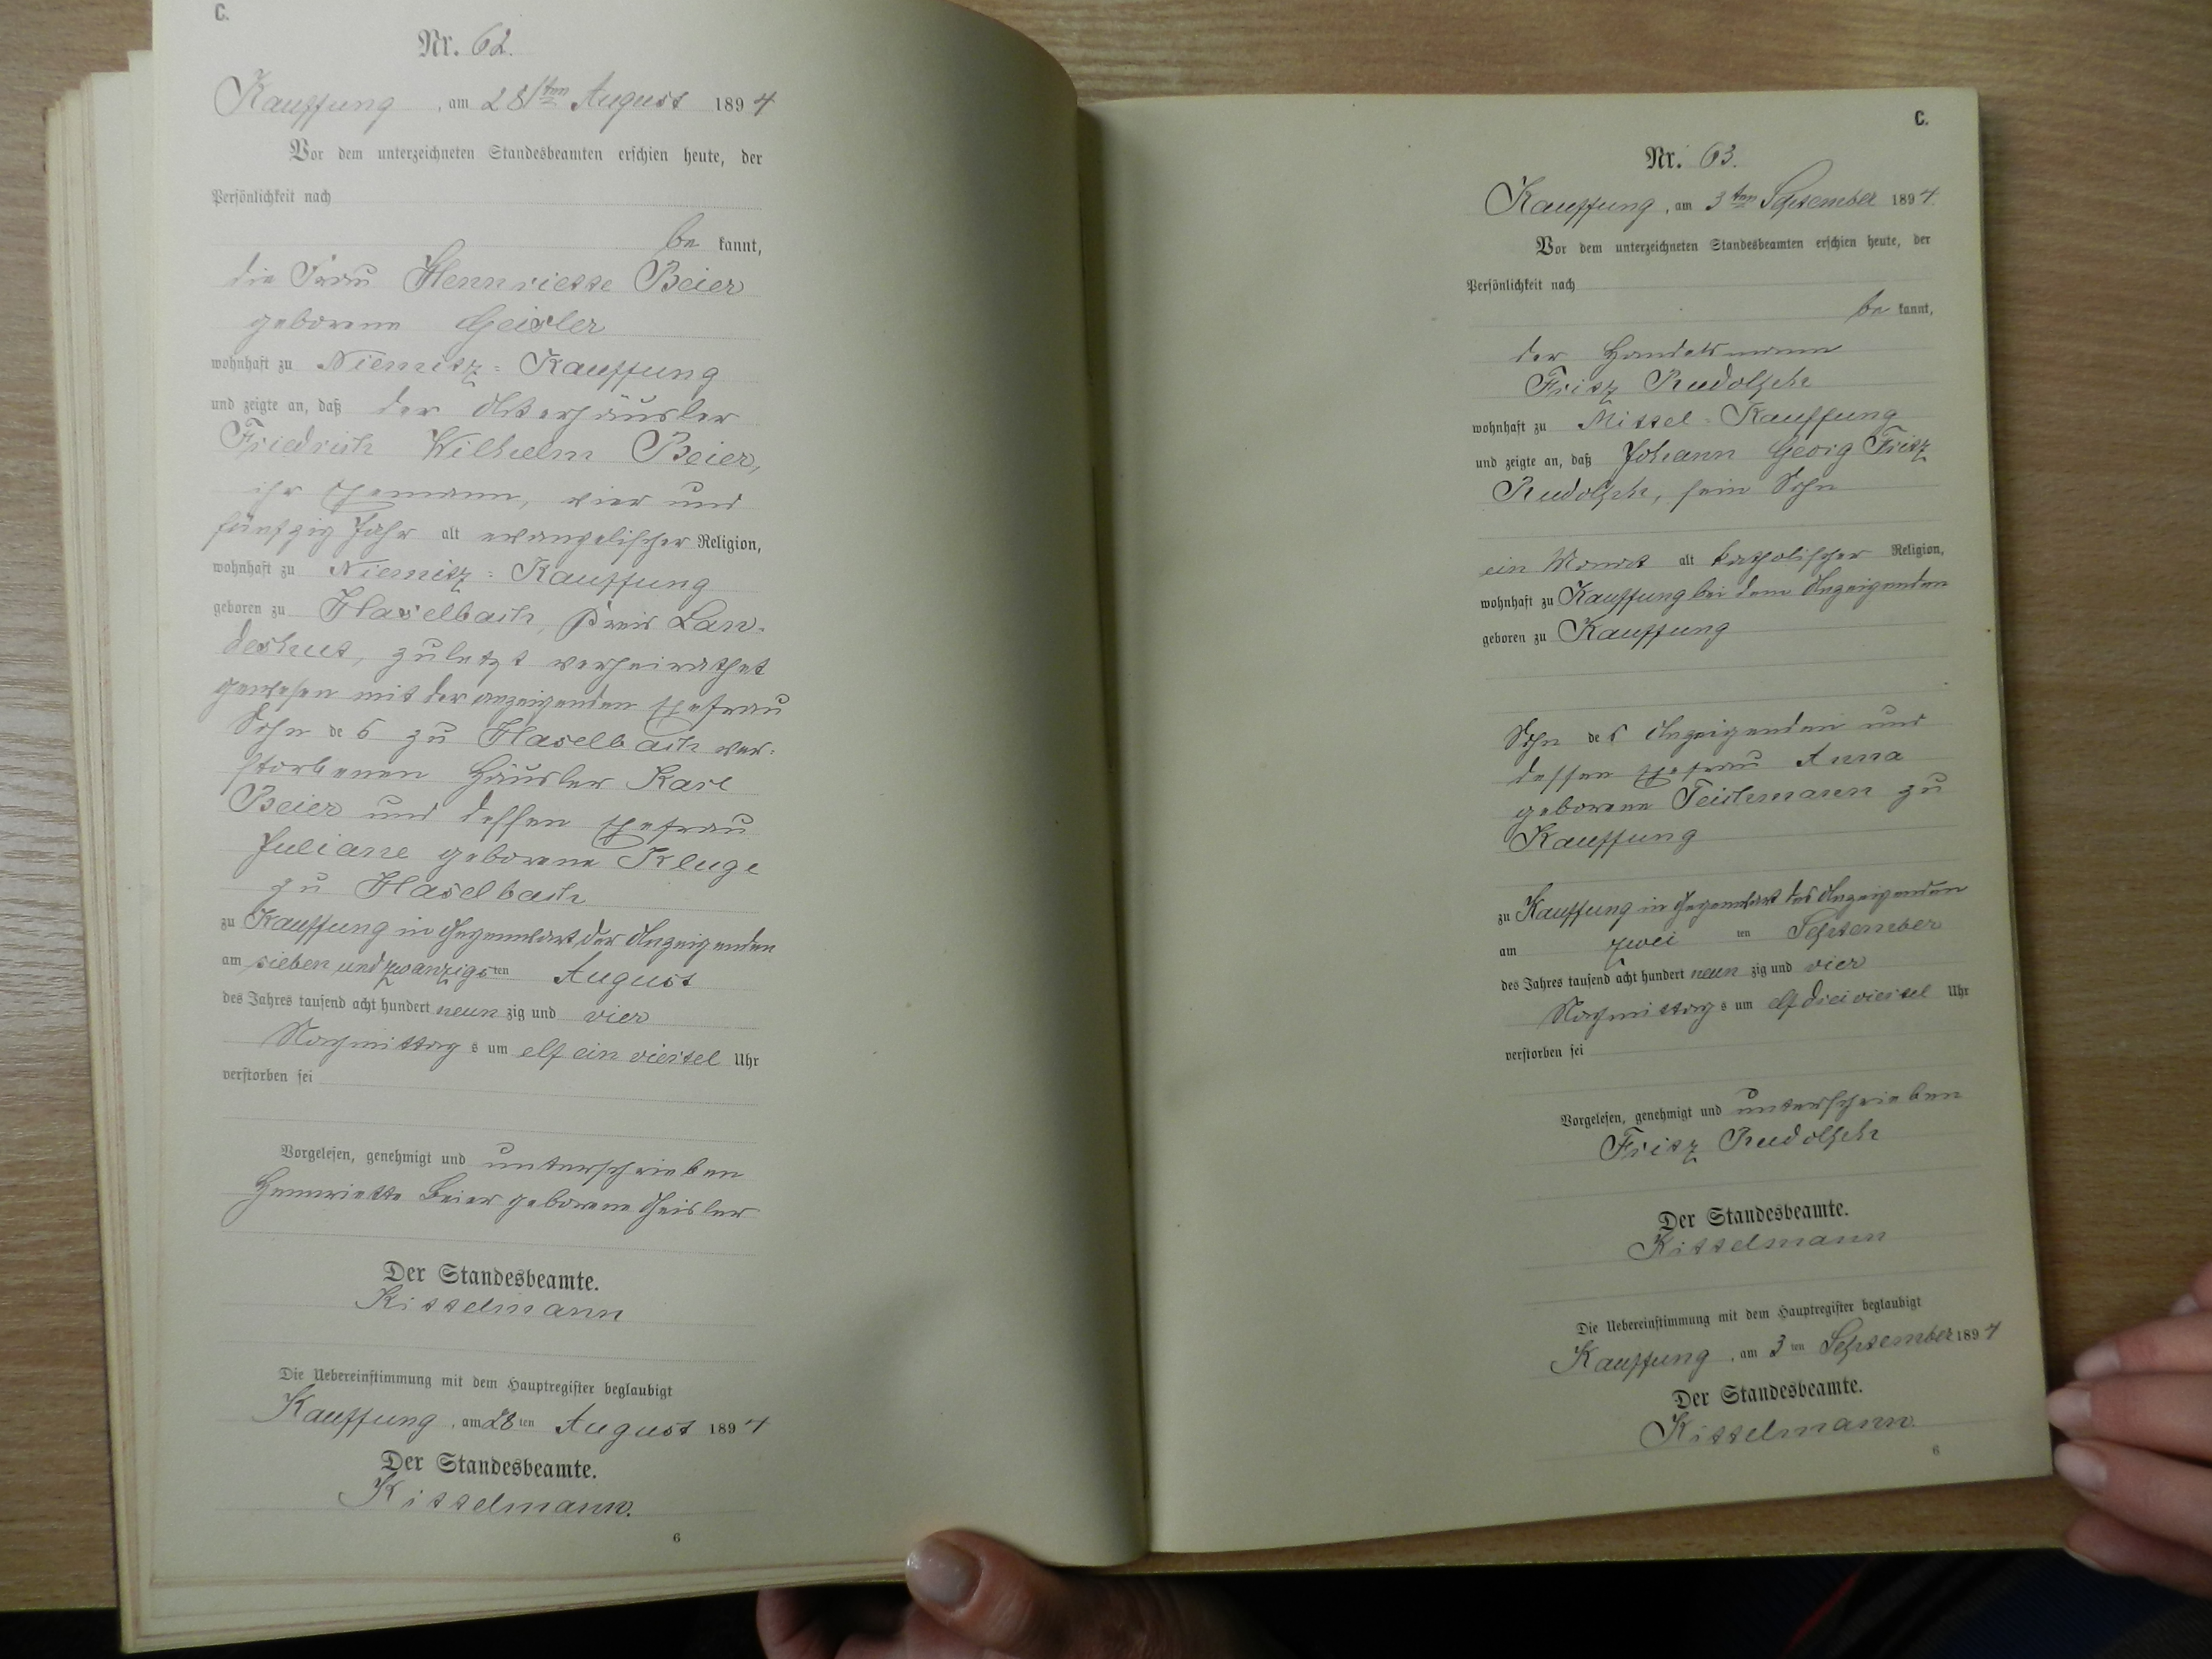 C.
Nr. 62.
Kauffung, am 28ten August 1894
Vor dem unterzeichneten Standesbeamten erschien heute, der
Persönlichkeit nach
be kannt,
die Frau Henriette Beier
geborene Geisler
wohnhaft zu Niemitz-Kauffung
und zeigte an, daß der
Friedrich Wilhelm Beier,
ihr Ehemann, vier und
fünfzig Jahr alt evangelischer Religion,
wohnhaft zu Niemitz-Kauffung
geboren zu Haselbach, Kreis Lan-
deshut, zuletzt verheirathet
gewesen mit der anzeigenden Ehefrau
Sohn des zu Haselbach ver-
storbenen Häusler Karl
Beier und dessen Ehefrau
Juliane geborene Kluge
zu Haselbach
zu Kauffung in Gegenwart der Anzeigenden
am sieben und zwanzigsten August
des Jahres tausend acht hundert neun zig und vier
Nachmittags um elf ein viertel Uhr
verstorben sei
Vorgelesen, genehmigt und unterschrieben
Henriette Beier geborene Geisler
Der Standesbeamte.
Kittelmann
Die Uebereinstimmung mit dem Hauptregister beglaubigt
Kauffung, am 28ten August 1894
Der Standesbeamte.
Kittelmann.
6
C.
Nr. 63.
Kauffung, am 3ten September 1894.
Vor dem unterzeichneten Standesbeamten erschien heute, der
Persönlichkeit nach
be kannt,
der Handelsmann
Fritz Rudolph
wohnhaft zu Mittel-Kauffung
und zeigte an, daß Johann Georg Fritz
Rudolph, sein Sohn
ein Monat alt katholischer Religion,
wohnhaft zu Kauffung bei dem Anzeigenden
geboren zu Kauffung
Sohn des Anzeigenden und
dessen Ehefrau Anna
geborene Teichmann zu
Kauffung
zu Kauffung in Gegenwart des Anzeigenden
am zwei ten September
des Jahres tausend acht hundert neun zig und vier
Nachmittags um elf dreiviertel Uhr
verstorben sei
Vorgelesen, genehmigt und unterschrieben
Fritz Rudolph
Der Standesbeamte.
Kittelmann
Die Uebereinstimmung mit dem Hauptregister beglaubigt
Kauffung, am 3ten September 1894
Der Standesbeamte.
Kittelmann.
6